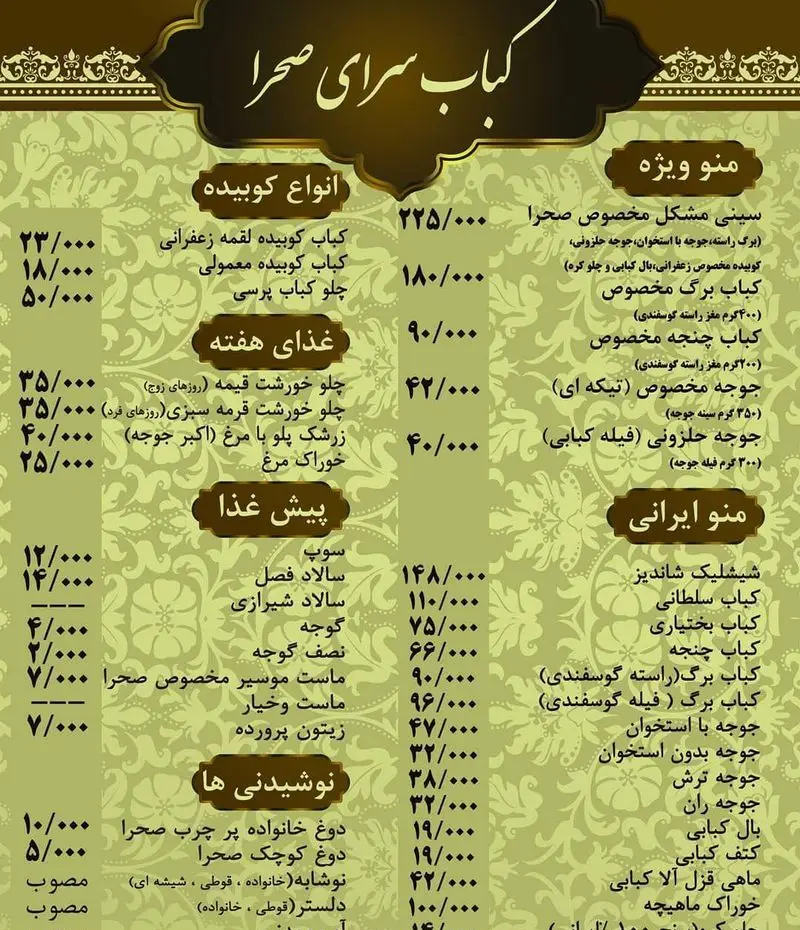 کباب سرای صحرا
منو ویژه
سینی مشکل مخصوص صحرا ۲۲۵/۰۰۰
(برگ راسته،جوجه با استخوان،جوجه حلزونی،
کوبیده مخصوص زعفرانی،بال کبابی و چلو کره)
کباب برگ مخصوص ۱۸۰/۰۰۰
(۴۰۰گرم مغز راسته گوسفندی)
کباب چنجه مخصوص ۹۰/۰۰۰
(۲۰۰گرم مغز راسته گوسفندی)
جوجه مخصوص (تیکه ای) ۴۲/۰۰۰
(۳۵۰ گرم سینه جوجه)
جوجه حلزونی (فیله کبابی) ۴۰/۰۰۰
(۳۰۰ گرم فیله جوجه)
منو ایرانی
شیشلیک شاندیز ۱۴۸/۰۰۰
کباب سلطانی ۱۱۰/۰۰۰
کباب بختیاری ۷۵/۰۰۰
کباب چنجه ۶۶/۰۰۰
کباب برگ(راسته گوسفندی) ۹۰/۰۰۰
کباب برگ ( فیله گوسفندی) ۹۶/۰۰۰
جوجه با استخوان ۴۷/۰۰۰
جوجه بدون استخوان ۳۲/۰۰۰
جوجه ترش ۳۸/۰۰۰
جوجه ران ۳۲/۰۰۰
بال کبابی ۱۹/۰۰۰
کتف کبابی ۱۹/۰۰۰
ماهی قزل آلا کبابی ۴۲/۰۰۰
خوراک ماهیچه ۱۰۰/۰۰۰
انواع کوبیده
کباب کوبیده لقمه زعفرانی ۲۳/۰۰۰
کباب کوبیده معمولی ۱۸/۰۰۰
چلو کباب پرسی ۵۰/۰۰۰
غذای هفته
چلو خورشت قیمه (روزهای زوج) ۳۵/۰۰۰
چلو خورشت قرمه سبزی(روزهای فرد) ۳۵/۰۰۰
زرشک پلو با مرغ (اکبر جوجه) ۴۰/۰۰۰
خوراک مرغ ۲۵/۰۰۰
پیش غذا
سوپ ۱۲/۰۰۰
سالاد فصل ۱۴/۰۰۰
سالاد شیرازی ---
گوجه ۴/۰۰۰
نصف گوجه ۲/۰۰۰
ماست موسیر مخصوص صحرا ۷/۰۰۰
ماست وخیار ---
زیتون پرورده ۷/۰۰۰
نوشیدنی ها
دوغ خانواده پر چرب صحرا ۱۰/۰۰۰
دوغ کوچک صحرا ۵/۰۰۰
نوشابه(خانواده ، قوطی ، شیشه ای) مصوب
دلستر(قوطی ، خانواده) مصوب